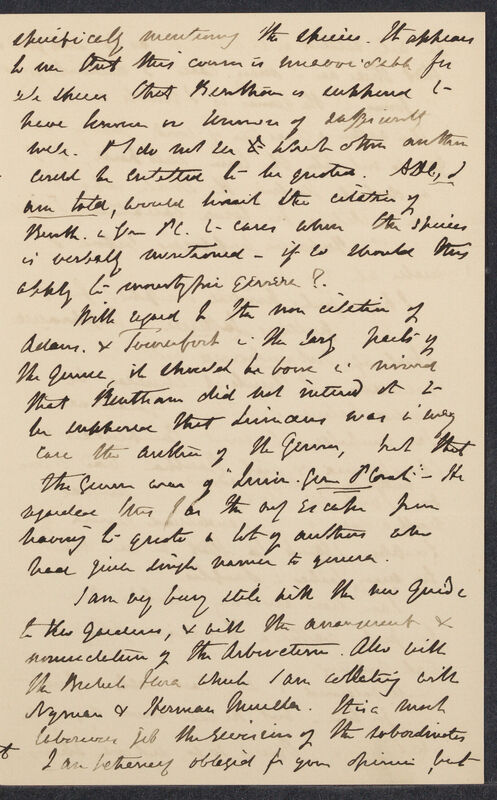 specifically mentioning the species. It appears
to me that this course is unavoidable for
the species that Bentham is supposed to
have known or known of sufficiently
well. I do not see to what other author
could be entitled to be quoted. ADC, I
am told, would limit the citation of
Benth. in Gen Pl. to cases where the species
is verbally mentioned – if so should this
apply to monotypic genera?
With regard to the non citation of
Adans. & Tournefort in the early parts of
the Genera, it should be borne in mind
that Bentham did not intend it to
be supposed that Linnæus was in every
case the author of the Genus, but that
the Genus was of "Linn. Gen Plant" – He
regarded this as the only escape from
having to quote a lot of authors who
had given single names to genera.
I am very busy still with the new Guide
to the Gardens, & with the arrangement &
nomenclature of the Arboretum. Also with
the British Flora which I am collating with
Nyman & Herman Mueller. It is a most
laborious job the revision of the subordinates
I am extremely obliged for your opinion, but